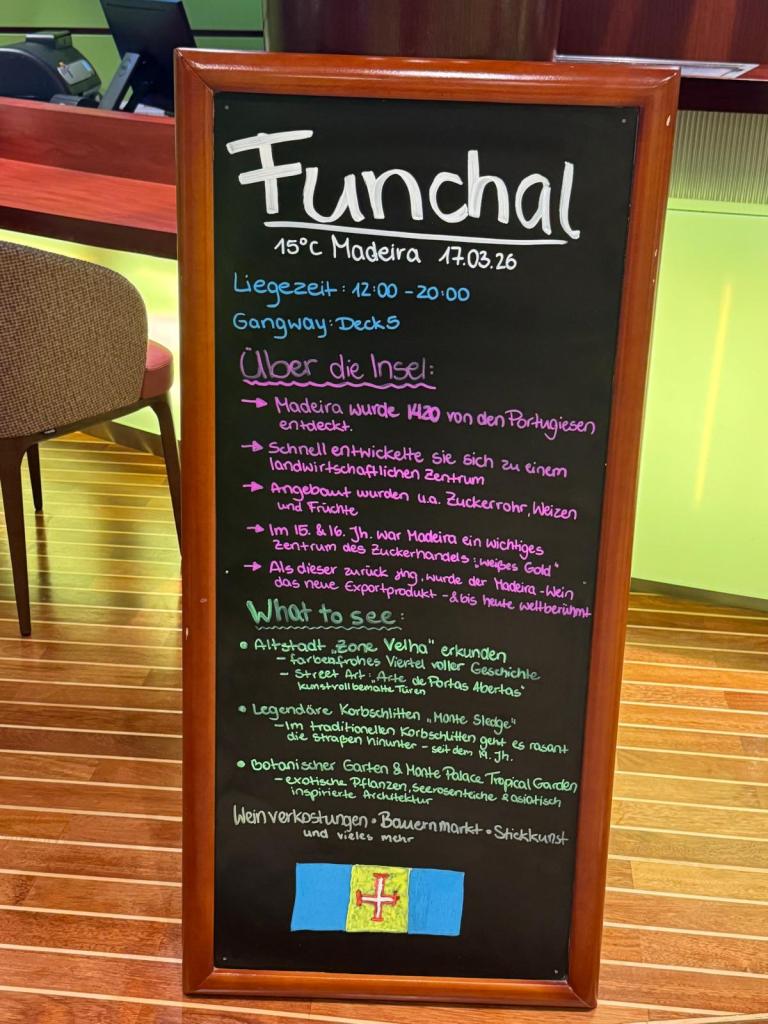 Funchal
15°C Madeira 17.03.26
Liegezeit: 12:00 - 20:00
Gangway: Deck 5
Über die Insel:
→ Madeira wurde 1420 von den Portugiesen
entdeckt.
→ Schnell entwickelte sie sich zu einem
landwirtschaftlichen Zentrum
→ Angebaut wurden u.a. Zuckerrohr, Weizen
und Früchte
→ Im 15. & 16. Jh. war Madeira ein wichtiges
Zentrum des Zuckerhandels: „weißes Gold"
→ Als dieser zurück ging, wurde der Madeira-Wein
das neue Exportprodukt - & bis heute weltberühmt
What to see:
• Altstadt „Zone Velha" erkunden
- farbenfrohes Viertel voller Geschichte
- Street Art: „Arte de Portas Abertas"
kunstvoll bemalte Türen
• Legendäre Korbschlitten „Monte Sledge"
- Im traditionellen Korbschlitten geht es rasant
die Straßen hinunter - seit dem 19. Jh.
• Botanischer Garten & Monte Palace Tropical Garden
- exotische Pflanzen, seerosenteiche & asiatisch
inspirierte Architektur
Weinverkostungen • Bauernmarkt • Stickkunst
und vieles mehr